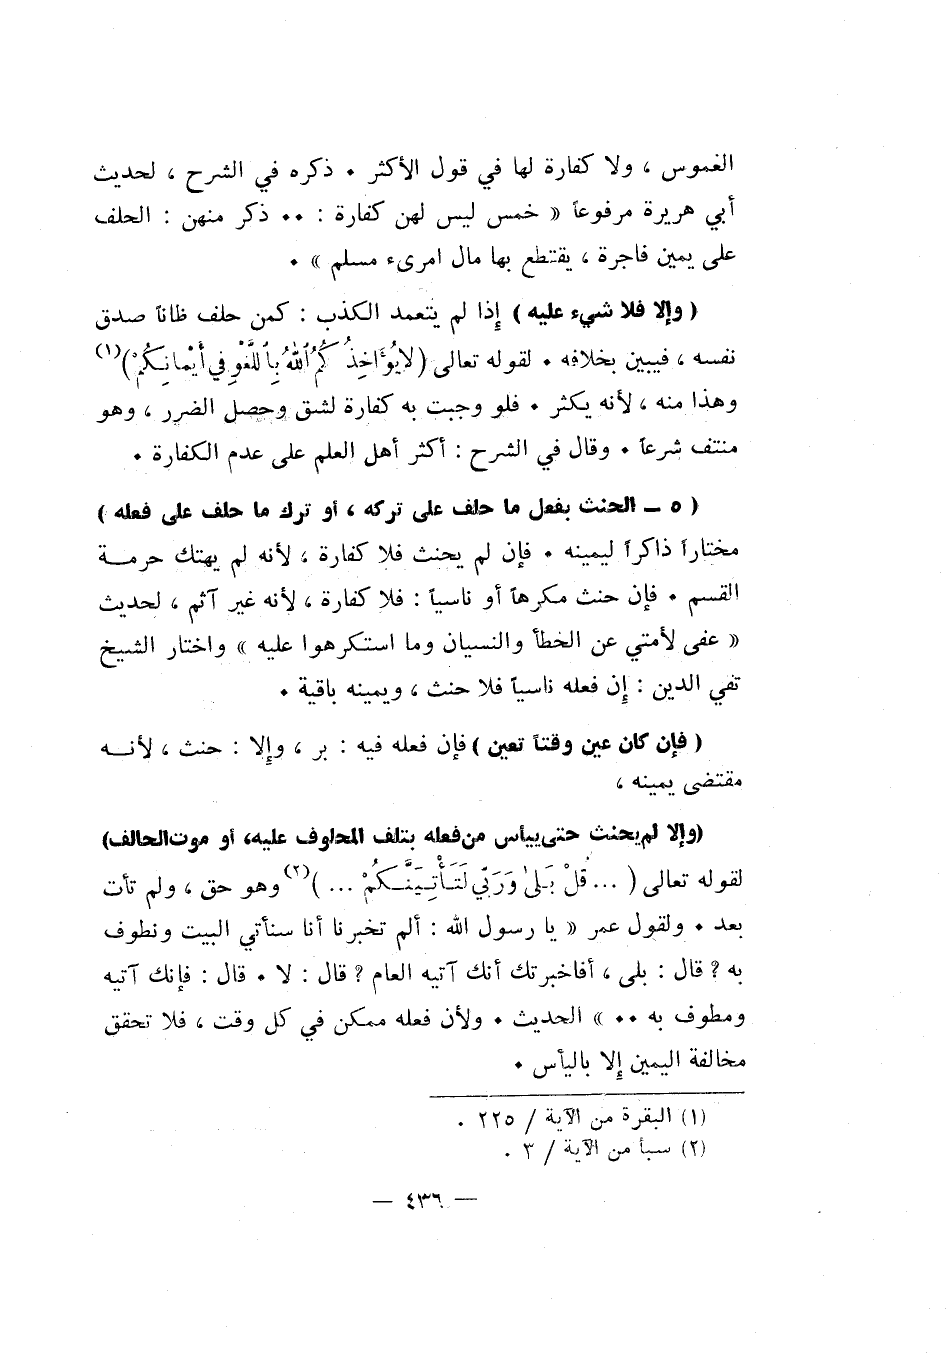 الغموس ، ولا كفارة لها في قول الأكثر . ذكره في الشرح ، لحديث
أبي هريرة مرفوعاً « خمس ليس لهن كفارة : .. ذكر منهن : الحلف
على يمين فاجرة ، يقتطع بها مال امرىء مسلم » .
( وإلا فلا شيء عليه ) إذا لم يتعمد الكذب : كمن حلف ظاناً صدق
نفسه ، فيبين بخلافه . لقوله تعالى ( لَايُؤَاخِذُكُمُ ٱللَّهُ بِٱللَّغْوِ فِي أَيْمَانِكُمْ )(١)
وهذا منه ، لأنه يكثر . فلو وجبت به كفارة لشق وحصل الضرر ، وهو
منتف شرعاً . وقال في الشرح : أكثر أهل العلم على عدم الكفارة .
( ٥ ــ الحنث بفعل ما حلف على تركه ، أو ترك ما حلف على فعله )
مختاراً ذاكراً ليمينه . فإن لم يحنث فلا كفارة ، لأنه لم يهتك حرمـــة
القسم . فإن حنث مكرهاً أو ناسياً : فلا كفارة ، لأنه غير آثم ، لحديث
« عفى لأمتي عن الخطأ والنسيان وما استكرهوا عليه » واختار الشيخ
تفي الدين : إن فعله ناسياً فلا حنث ، ويمينه باقية .
( فإن كان عين وقتاً تعين ) فإن فعله فيه : بر ، وإلا : حنث ، لأنـــه
مقتضى يمينه ،
(وإلا لم يحنث حتى ييأس من فعله بتلف المحلوف عليه، أو موت الحالف)
لقوله تعالى ( ... قُلْ بَلَىٰ وَرَبِّي لَتَأْتِيَنَّكُمْ ... )(٢) وهو حق ، ولم تأت
بعد . ولقول عمر « يا رسول الله : ألم تخبرنا أنا سنأتي البيت ونطوف
به ? قال : بلى ، أفاخبرتك أنك آتيه العام ? قال : لا . قال : فإنك آتيه
ومطوف به .. » الحديث . ولأن فعله ممكن في كل وقت ، فلا تحقق
مخالفة اليمين إلا باليأس .
(١) البقرة من الآية / ٢٢٥ .
(٢) سبأ من الآية / ٣ .
— ٤٣٦ —